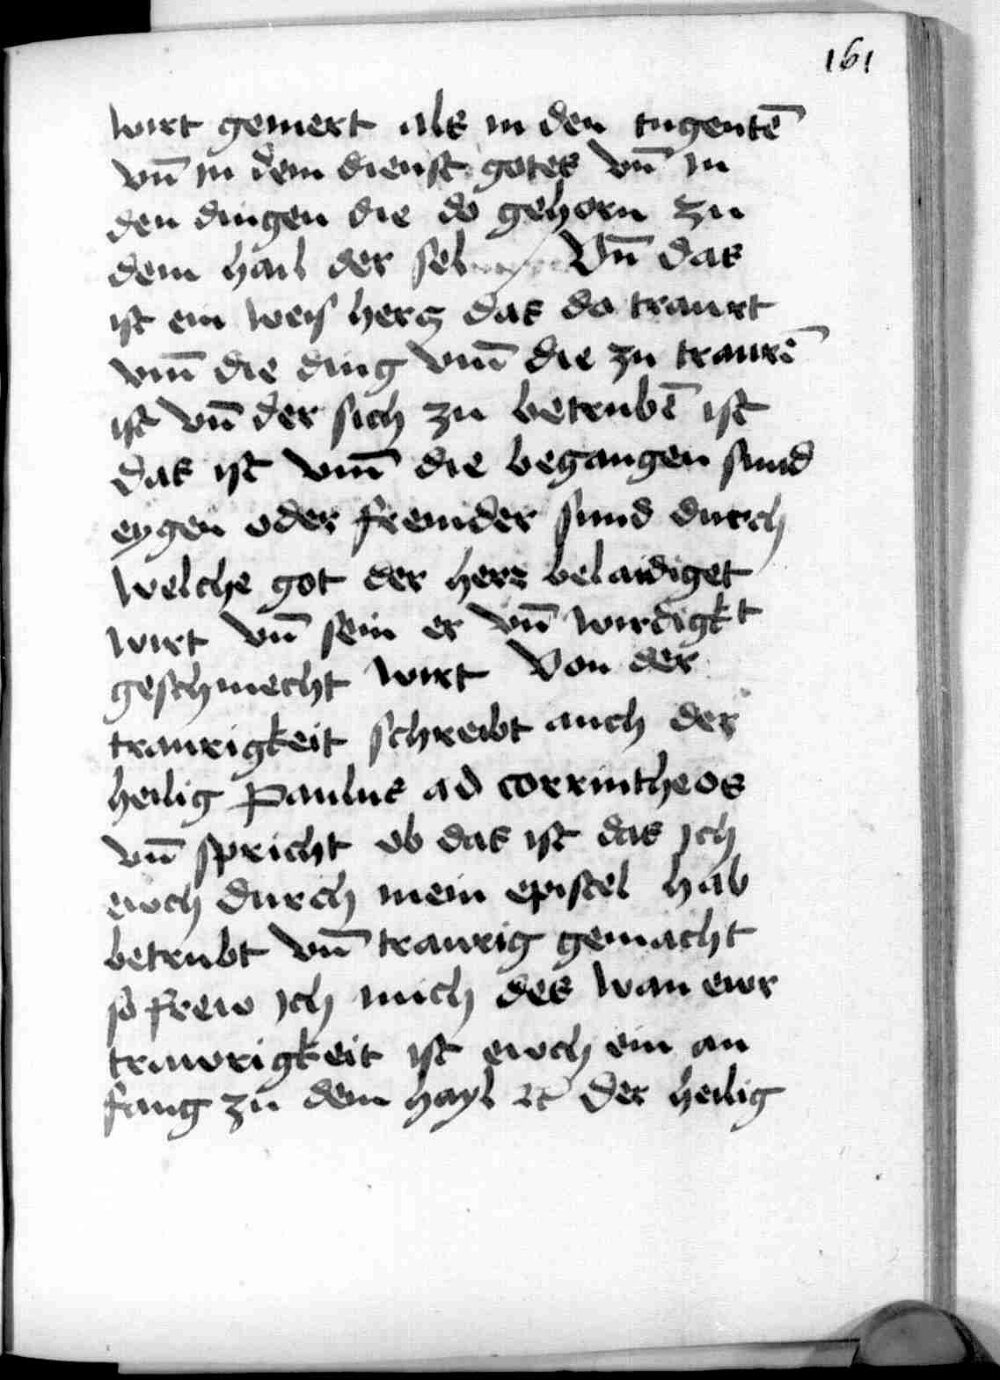 161
wirt gemert als in den tugentē
vn̄ in dem dienst gotes vn̄ in
den dingen die do gehorn zu
dem hail der sel Vn̄ das
ist ein weis hercz das do traurt
vm̄ die ding vm̄ die zu traurē
ist vn̄ der sich zu betrubē ist
das ist vm̄ die begangen sund
eygen oder fremder sund durch
welche got der herr belaidiget
wirt vn̄ sein er vn̄ wirdigkt
geschmecht wirt Von der
traurigkeit schreibt auch der
heilig Paulus ad corrintheos
vn̄ spricht ob das ist das Jch
ewch durch mein epistel hab
betrubt vn̄ trawrig gemacht
so frew Jch mich des wan ewr
trawrigkeit ist ewch ein an
fang zu dem hayl ⁊c Der heilig